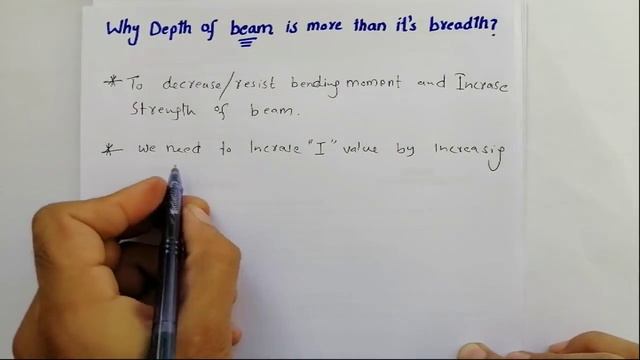 Why Depth of beam is more than it's breadth?
* To decrease/resist bending moment and Incrase
Strength of beam.
* we need to Increase "I" value by increasig